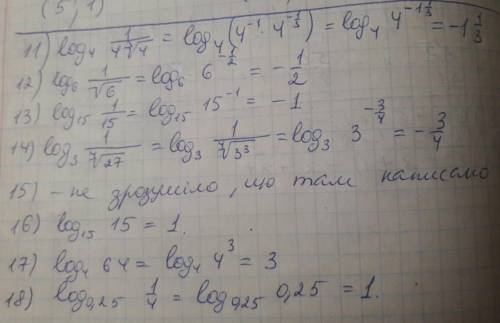 (5; 1)
11) log₄ 1/(4∛4) = log₄ (4⁻¹ · 4^(-1/3)) = log₄ 4^(-1 1/3) = -1 1/3
12) log₆ 1/√6 = log₆ 6^(-1/2) = -1/2
13) log₁₅ 1/15 = log₁₅ 15⁻¹ = -1
14) log₃ 1/⁴√27 = log₃ 1/⁴√3³ = log₃ 3^(-3/4) = -3/4
15) - не зрозуміло, що там написано
16) log₁₅ 15 = 1.
17) log₄ 64 = log₄ 4³ = 3
18) log₀,₂₅ 1/4 = log₀,₂₅ 0,25 = 1.